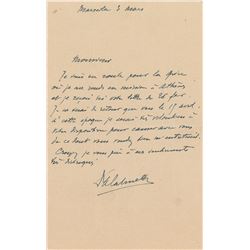 Marseille 3 mars
Monsieur
Je suis en route pour la Grèce
où je me rends en mission à Athènes
et je reçois ici votre lettre de 26 fév.
Je serai de retour que vers le 15 avril
à cette époque je serai très volontiers à
votre disposition pour causer avec vous
de ce dont vous voulez bien m'entretenir
Croyez je vous prie à mes sentiments
très distingués